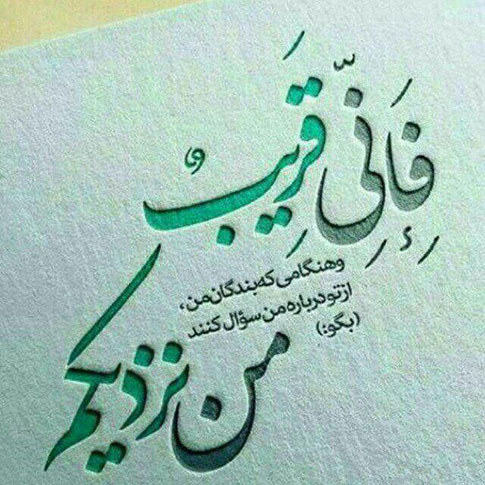 فَإِنِّی قَرِیبٌ
وهنگامی که بندگان من،
از تو درباره من سؤال کنند
(بگو:)
من نزدیکم